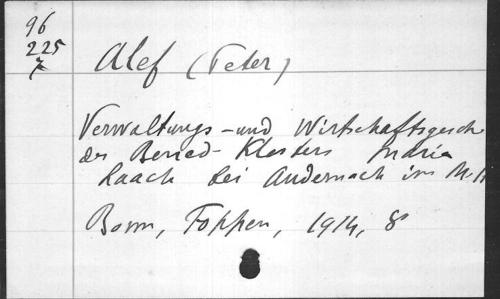 96
225
7
Alef (Peter)
Verwaltungs-und Wirtschaftsgesch
des Bened-Klosters Maria
Laach bei Andernach im M.A
Bonn, Foppen, 1914, 8°